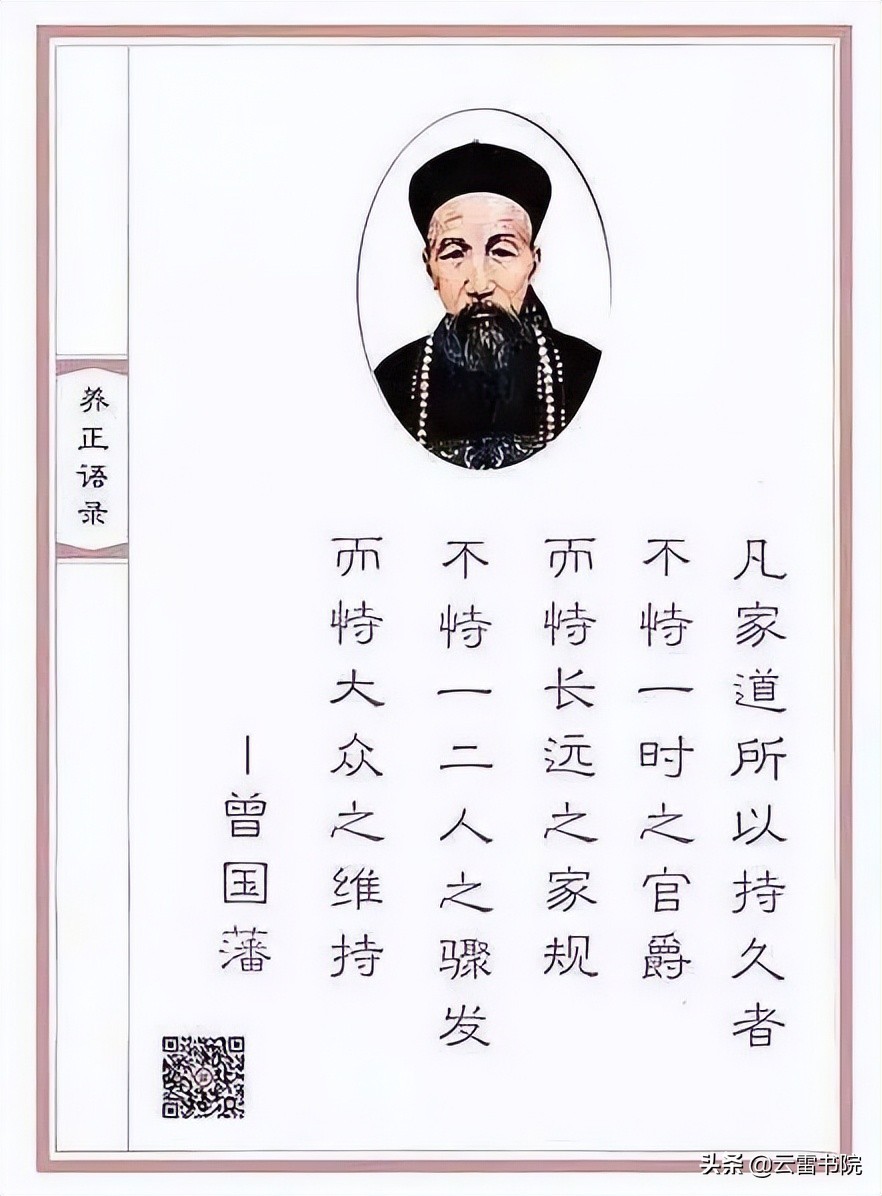 凡家道所以持久者
不恃一时之官爵
而恃长远之家规
不恃一二人之骤发
而恃大众之维持
—曾国藩
养正语录
头条 @云雷书院